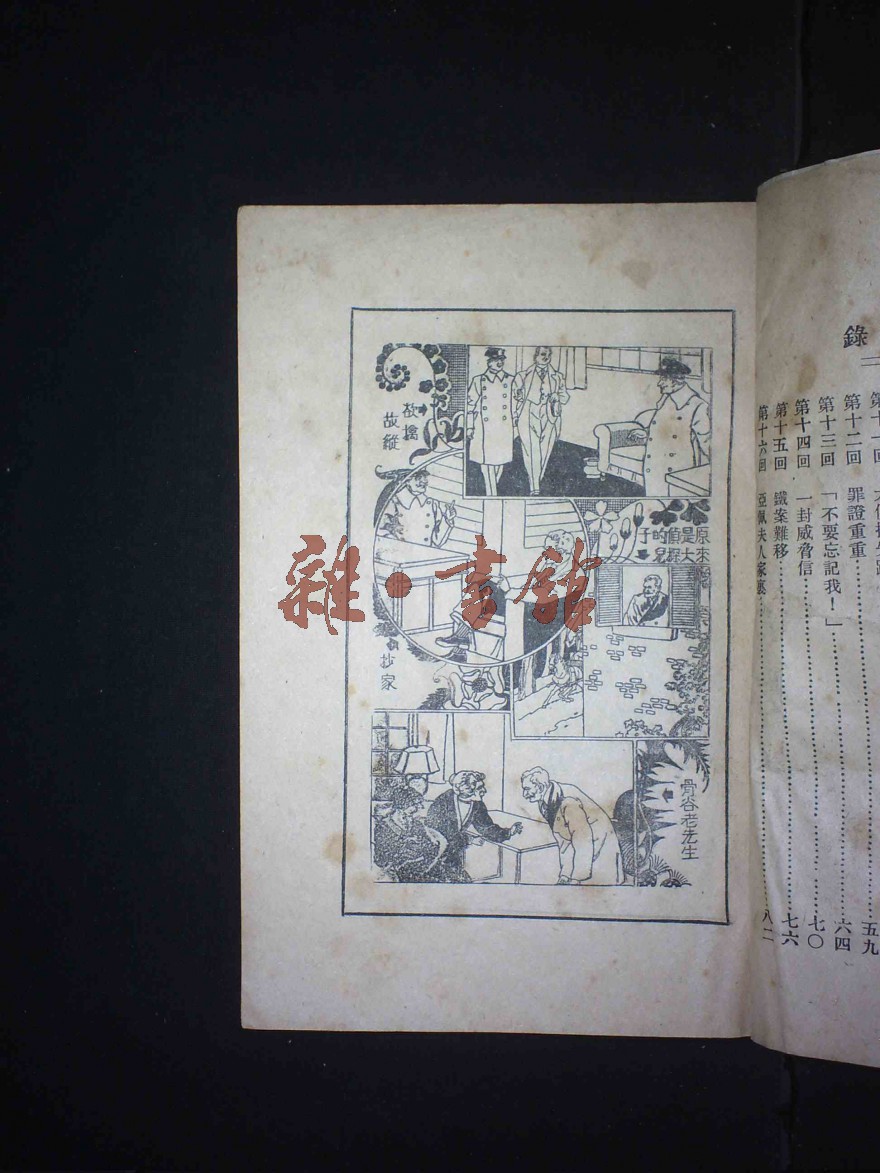 錄
二
第十一回
第十二回 罪證重重 六四
第十三回 「不要忘記我！」
第十四回 一封威脅信 七〇
第十五回 鐵案難移 七六
第十六回 亞佩夫人家裏 八二
五九
故擒
故縱
原來
是大
偵探
的兒
子
抄家
骨谷老先生
雜·書館